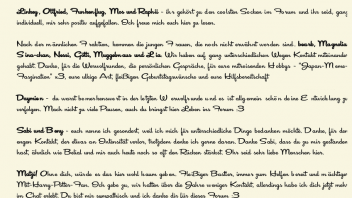 Linksy, Ottfried, Funkenflug, Mos und Raphii - ihr gehört zu den coolsten Socken im Forum und ihr seid, ganz
individuell, mir sehr positiv aufgefallen. Ich freue mich euch hier zu lesen.
Nach der männlichen Fraktion, kommen die jungen Frauen, die noch nicht erwähnt werden sind. Magnolia
Sina-chan, Nessi, Gitti, Muggelmaus und Lia. Wir haben auf ganz unterschiedlichen Wegen Kontakt miteinander
gehabt. Danke, für die Umwelfreunde, die persönlichen Gespräche, für eure mitreisenden Hobbys - "Japan-Mama-
Faszination" x3, eure ulkige Art, fleißigen Geburtstagswünsche und eure Hilfsbereitschaft
- du warst bemerkenswert in der letzten und es ist allgemein schön deine Entwicklung zu
verfolgen. Mach nicht zu viele Pausen, auch du bringst hier Leben ins Forum :3
Sabi und Beny - euch nenne ich gesondert, weil ich mich für unterschiedliche Dinge bedanken möchte. Danke, für den
engen Kontakt, der etwas an Intensität verlor, trotzdem denke ich gerne daran. Danke Sabi, dass du zu mir gestanden
hast, ähnlich wie Bekal und mir auch heute noch so oft den Rücken stärkst. Ihr seid sehr liebe Menschen hier.
Matzi! Ohne dich, würde es das hier wohl kaum geben. Fleißiger Bastler, immer zum Helfen bereit und m witzige
Mit-Harry-Potter-Fan. Ich gebe zu, wir hatten über die Jahre wenigen Kontakt, allerdings habe ich dich jetzt mehr
im Chat erlebt. Du bist mir sympathisch und ich danke dir für dieses Forum :3